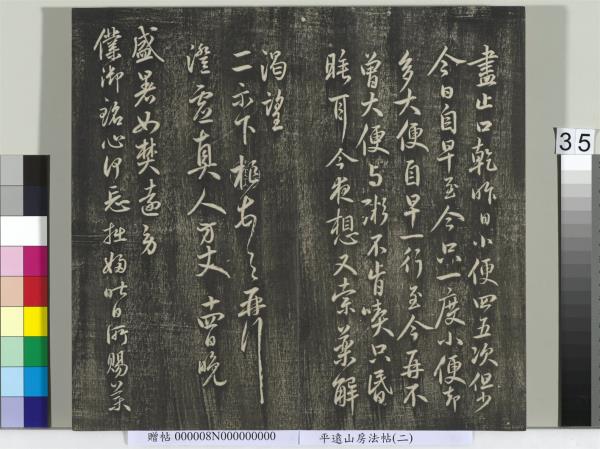 盡止口乾昨日小便四五次但少
今日自早至今只一度小便却
多大便自早一行至今再不
曾大便与粥不肯喫只昏
睡耳今夜想又索藥解
渴望
一示下極
再行
澄虛真人方丈 十四日晚
盛暑如焚遠
儻御銘心何忘拙婦昨日所賜藥
35
贈帖 000008N000000000
平遠山房法帖(二)